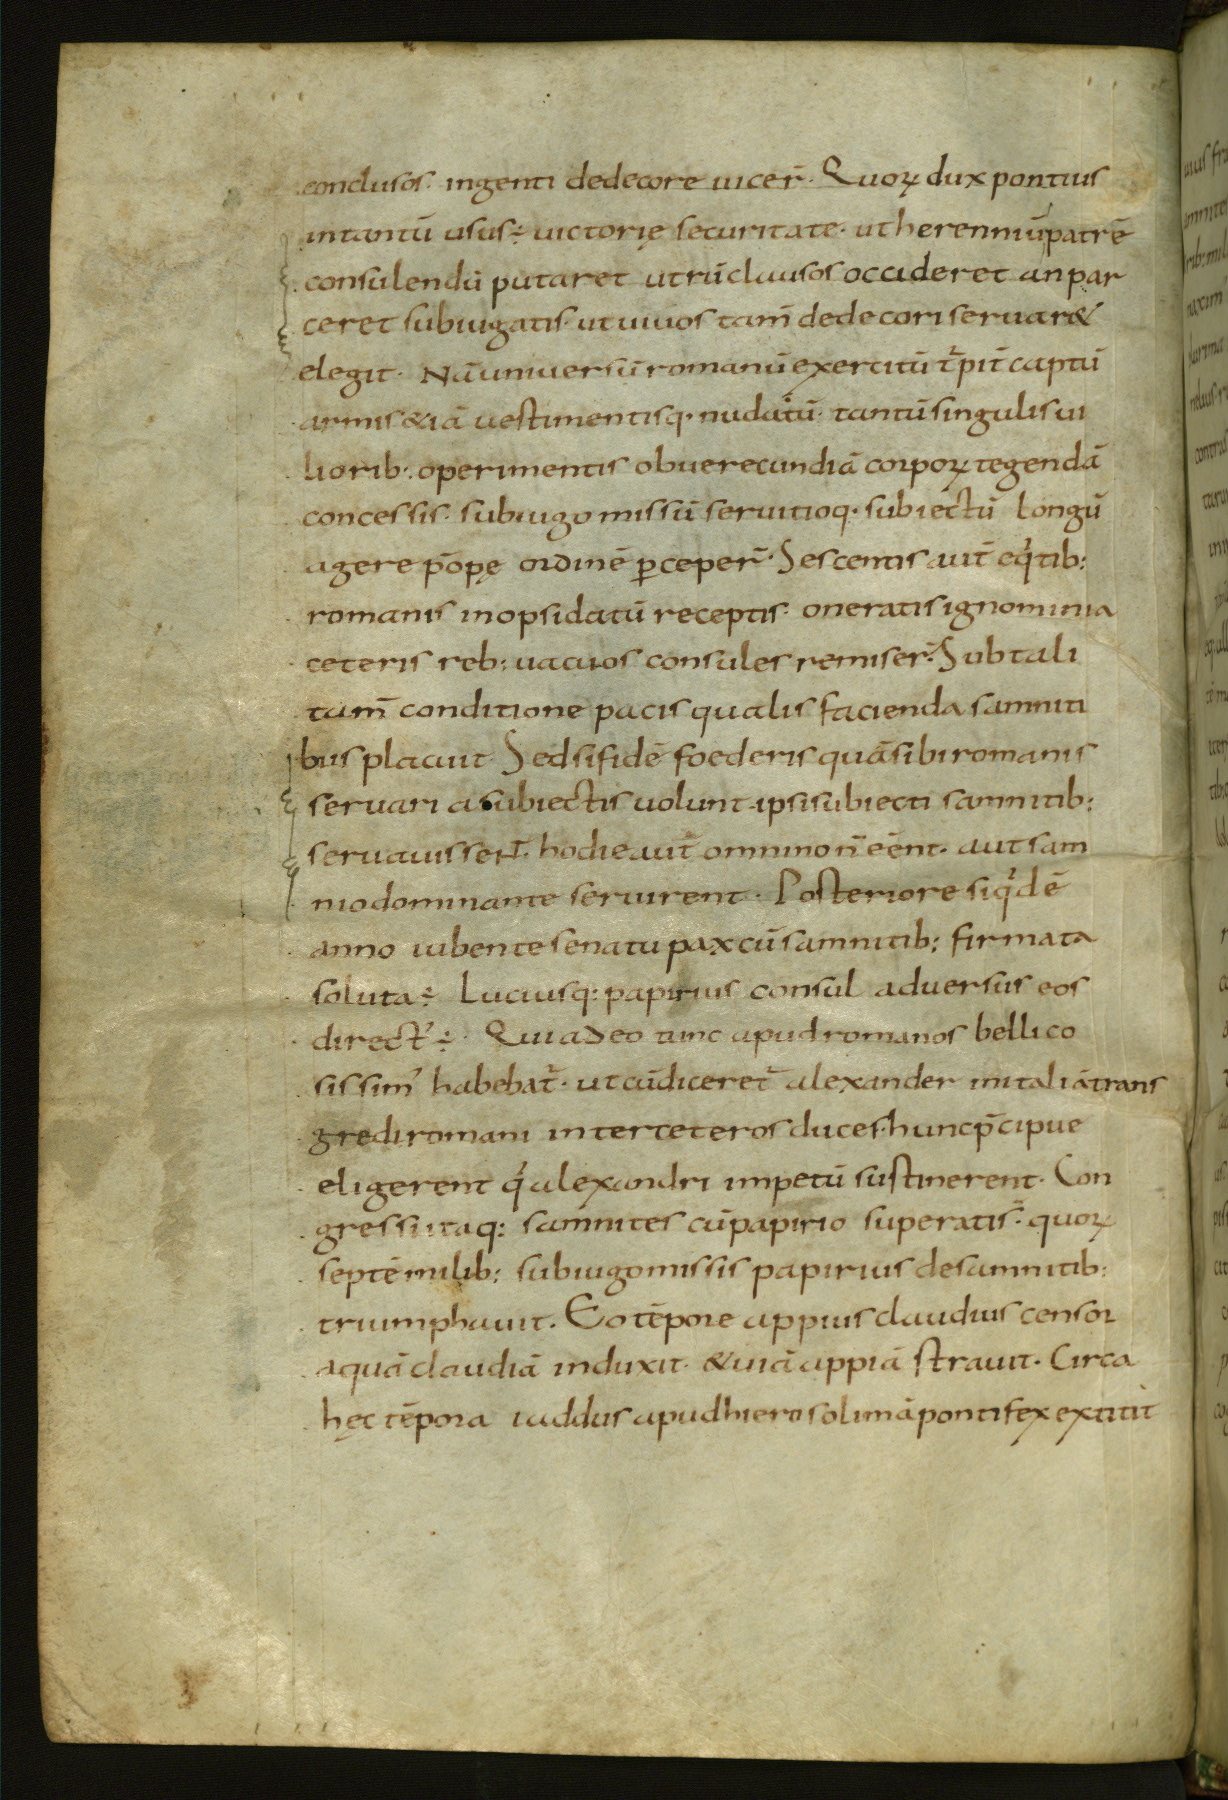 conclusos· ingenti dedecore uicer̄· Quoꝝ dux pontius
intantū usus ÷ uictorię securitate· ut herenniū patrē
consulendū putaret utrū clausos occideret an par
ceret subiugatis· ut uiuos tam̄ dedecori seruar&
elegit· Nā uniuersū romanū exercitū t̄pit̄ captū
armis &iā uestimentisq· nudatū· tantū singulis ui
liorib: operimentis ob uerecundiā corpoꝝ tegendā
concessis· sub iugo missū seruitioq· subiectū longū
agere pōpę ordinē ꝑceper̄· Sescentis aut̄ eqͥtib:
romanis in opsidatū receptis· oneratis ignominia
ceteris reb: uacuos consules remiser̄· Sub tali
tam̄ conditione pacis qualis facienda samniti
bus placuit· Sed si fidē foederis quā sibi romanis
seruari a subiectis uolunt· ipsi subiecti samnitib:
seruauissent̄· hodie aut̄ omnino n̄ eēnt· aut sam
nio dominante seruirent· Posteriore siqͥdē
anno iubente senatu pax cū samnitib: firmata
soluta ÷ Luciusq: papirius consul aduersus eos
direct᾽ ÷ Qui adeo tunc apud romanos bellico
sissim᾽ habebat᾽· ut cū diceret᾽ alexander in italiā trans
gredi romani inter ceteros duces· hunc p̄cipue
eligerent qͥ alexandri impetū sustinerent· Con
gressi itaq: samnites cū papirio superatis᾽· quoꝝ
septē milib: sub iugo missis papirius de samnitib:
triumphauit· Eo tēpore appius claudius censor
aquā claudiā induxit· & uiā appiā strauit· Circa
hęc tēpora iaddus apud hierosolimā pontifex extitit